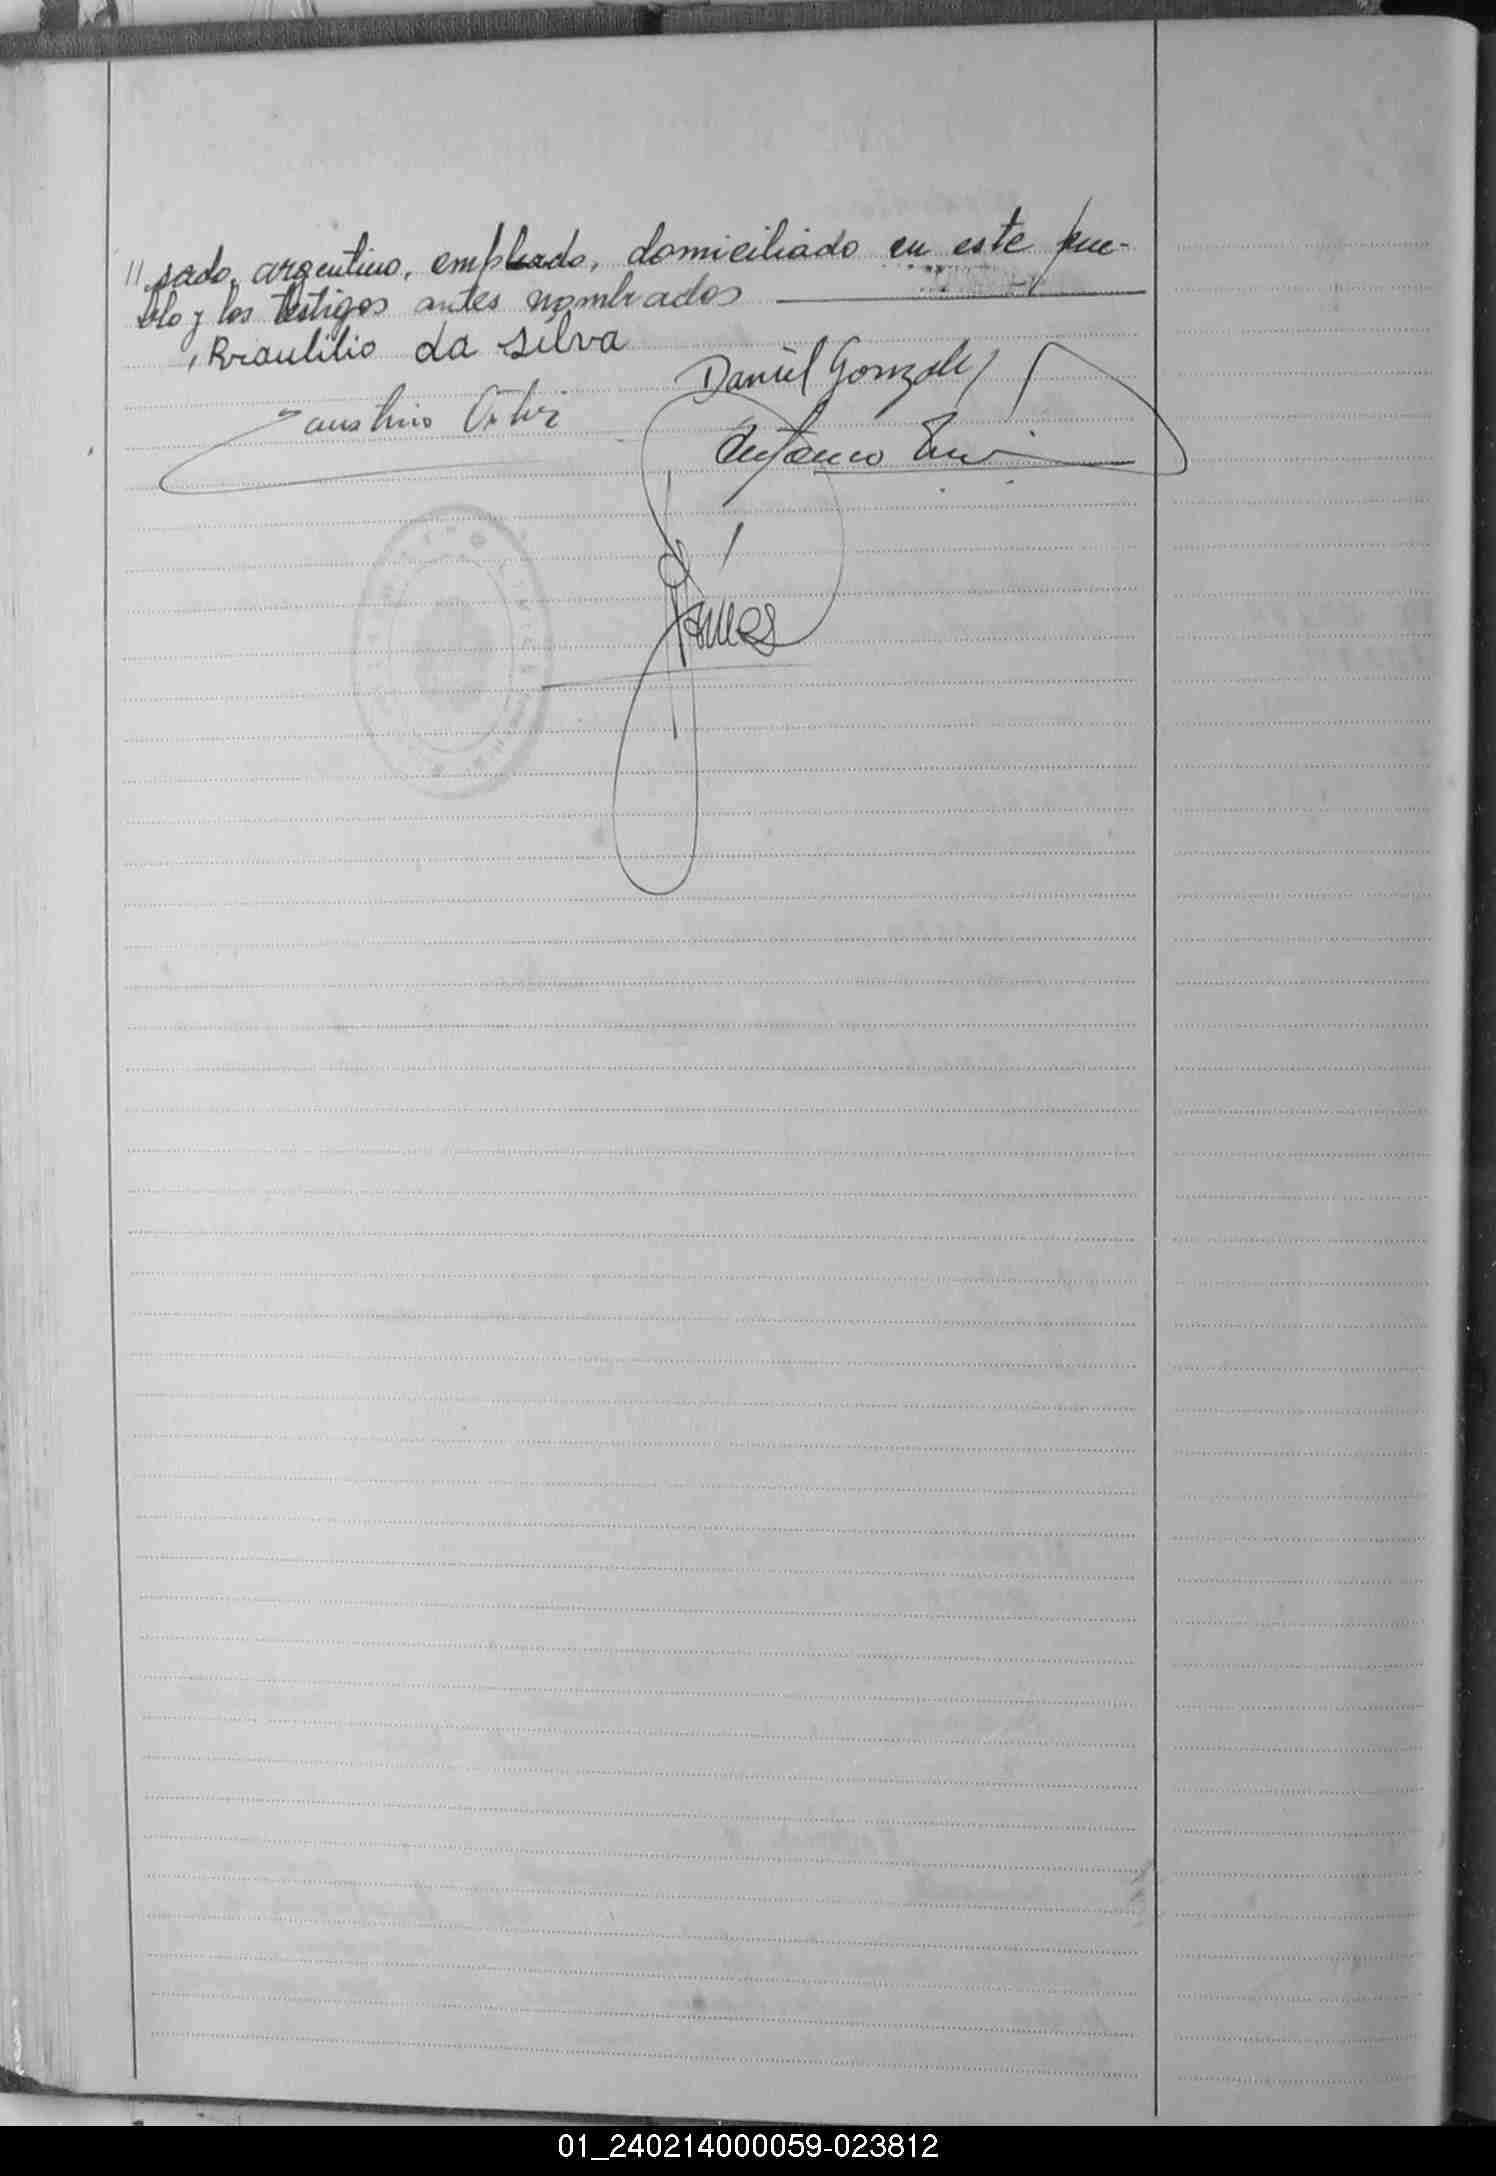 // sado, argentino, empleado, domiciliado en este pue-
blo y los testigos antes nombrados
Braulilio da silva
Daniel Gonzalez
Faustino
Antonio
01_240214000059-023812